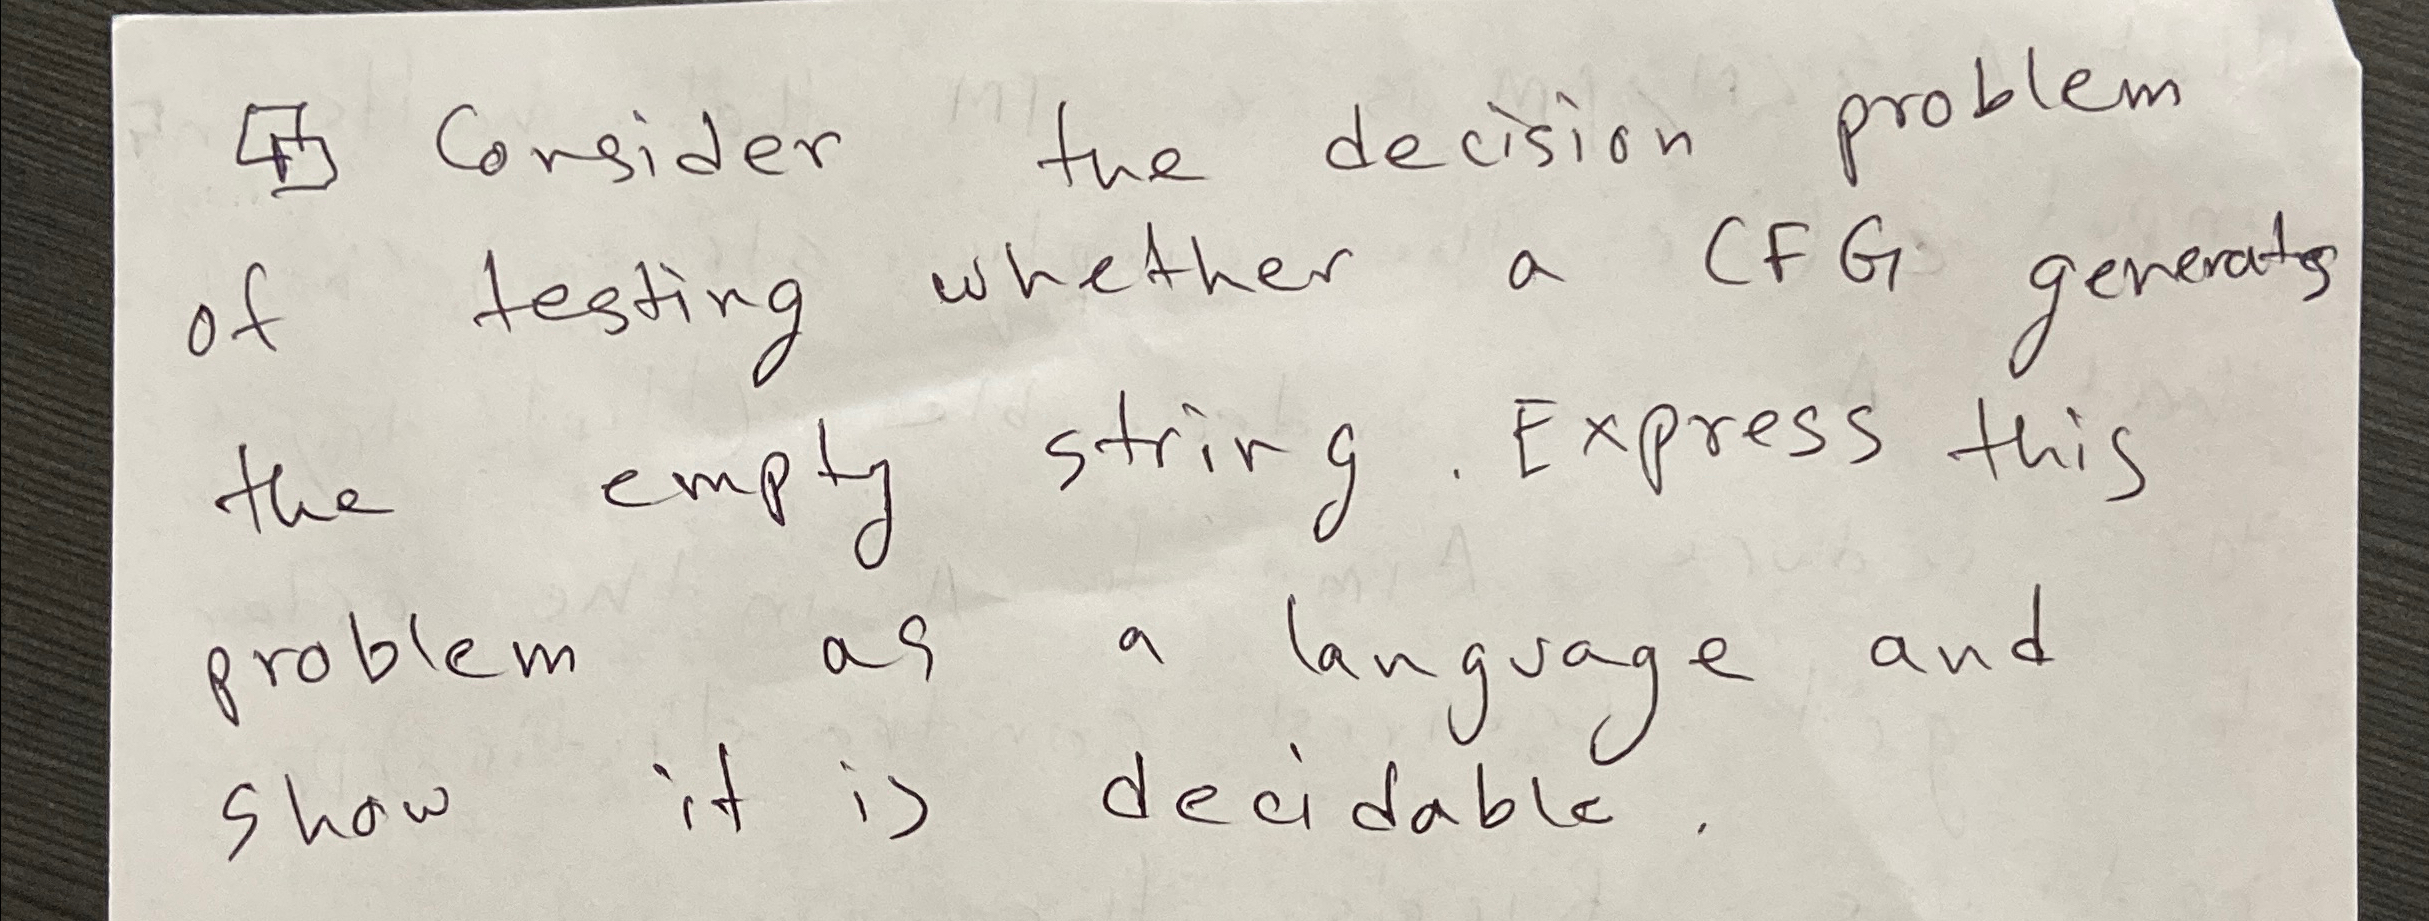 Consider the decision problem
of testing whether a CFG generates
the empty string. Express this
problem as a language and
show it is decidable.